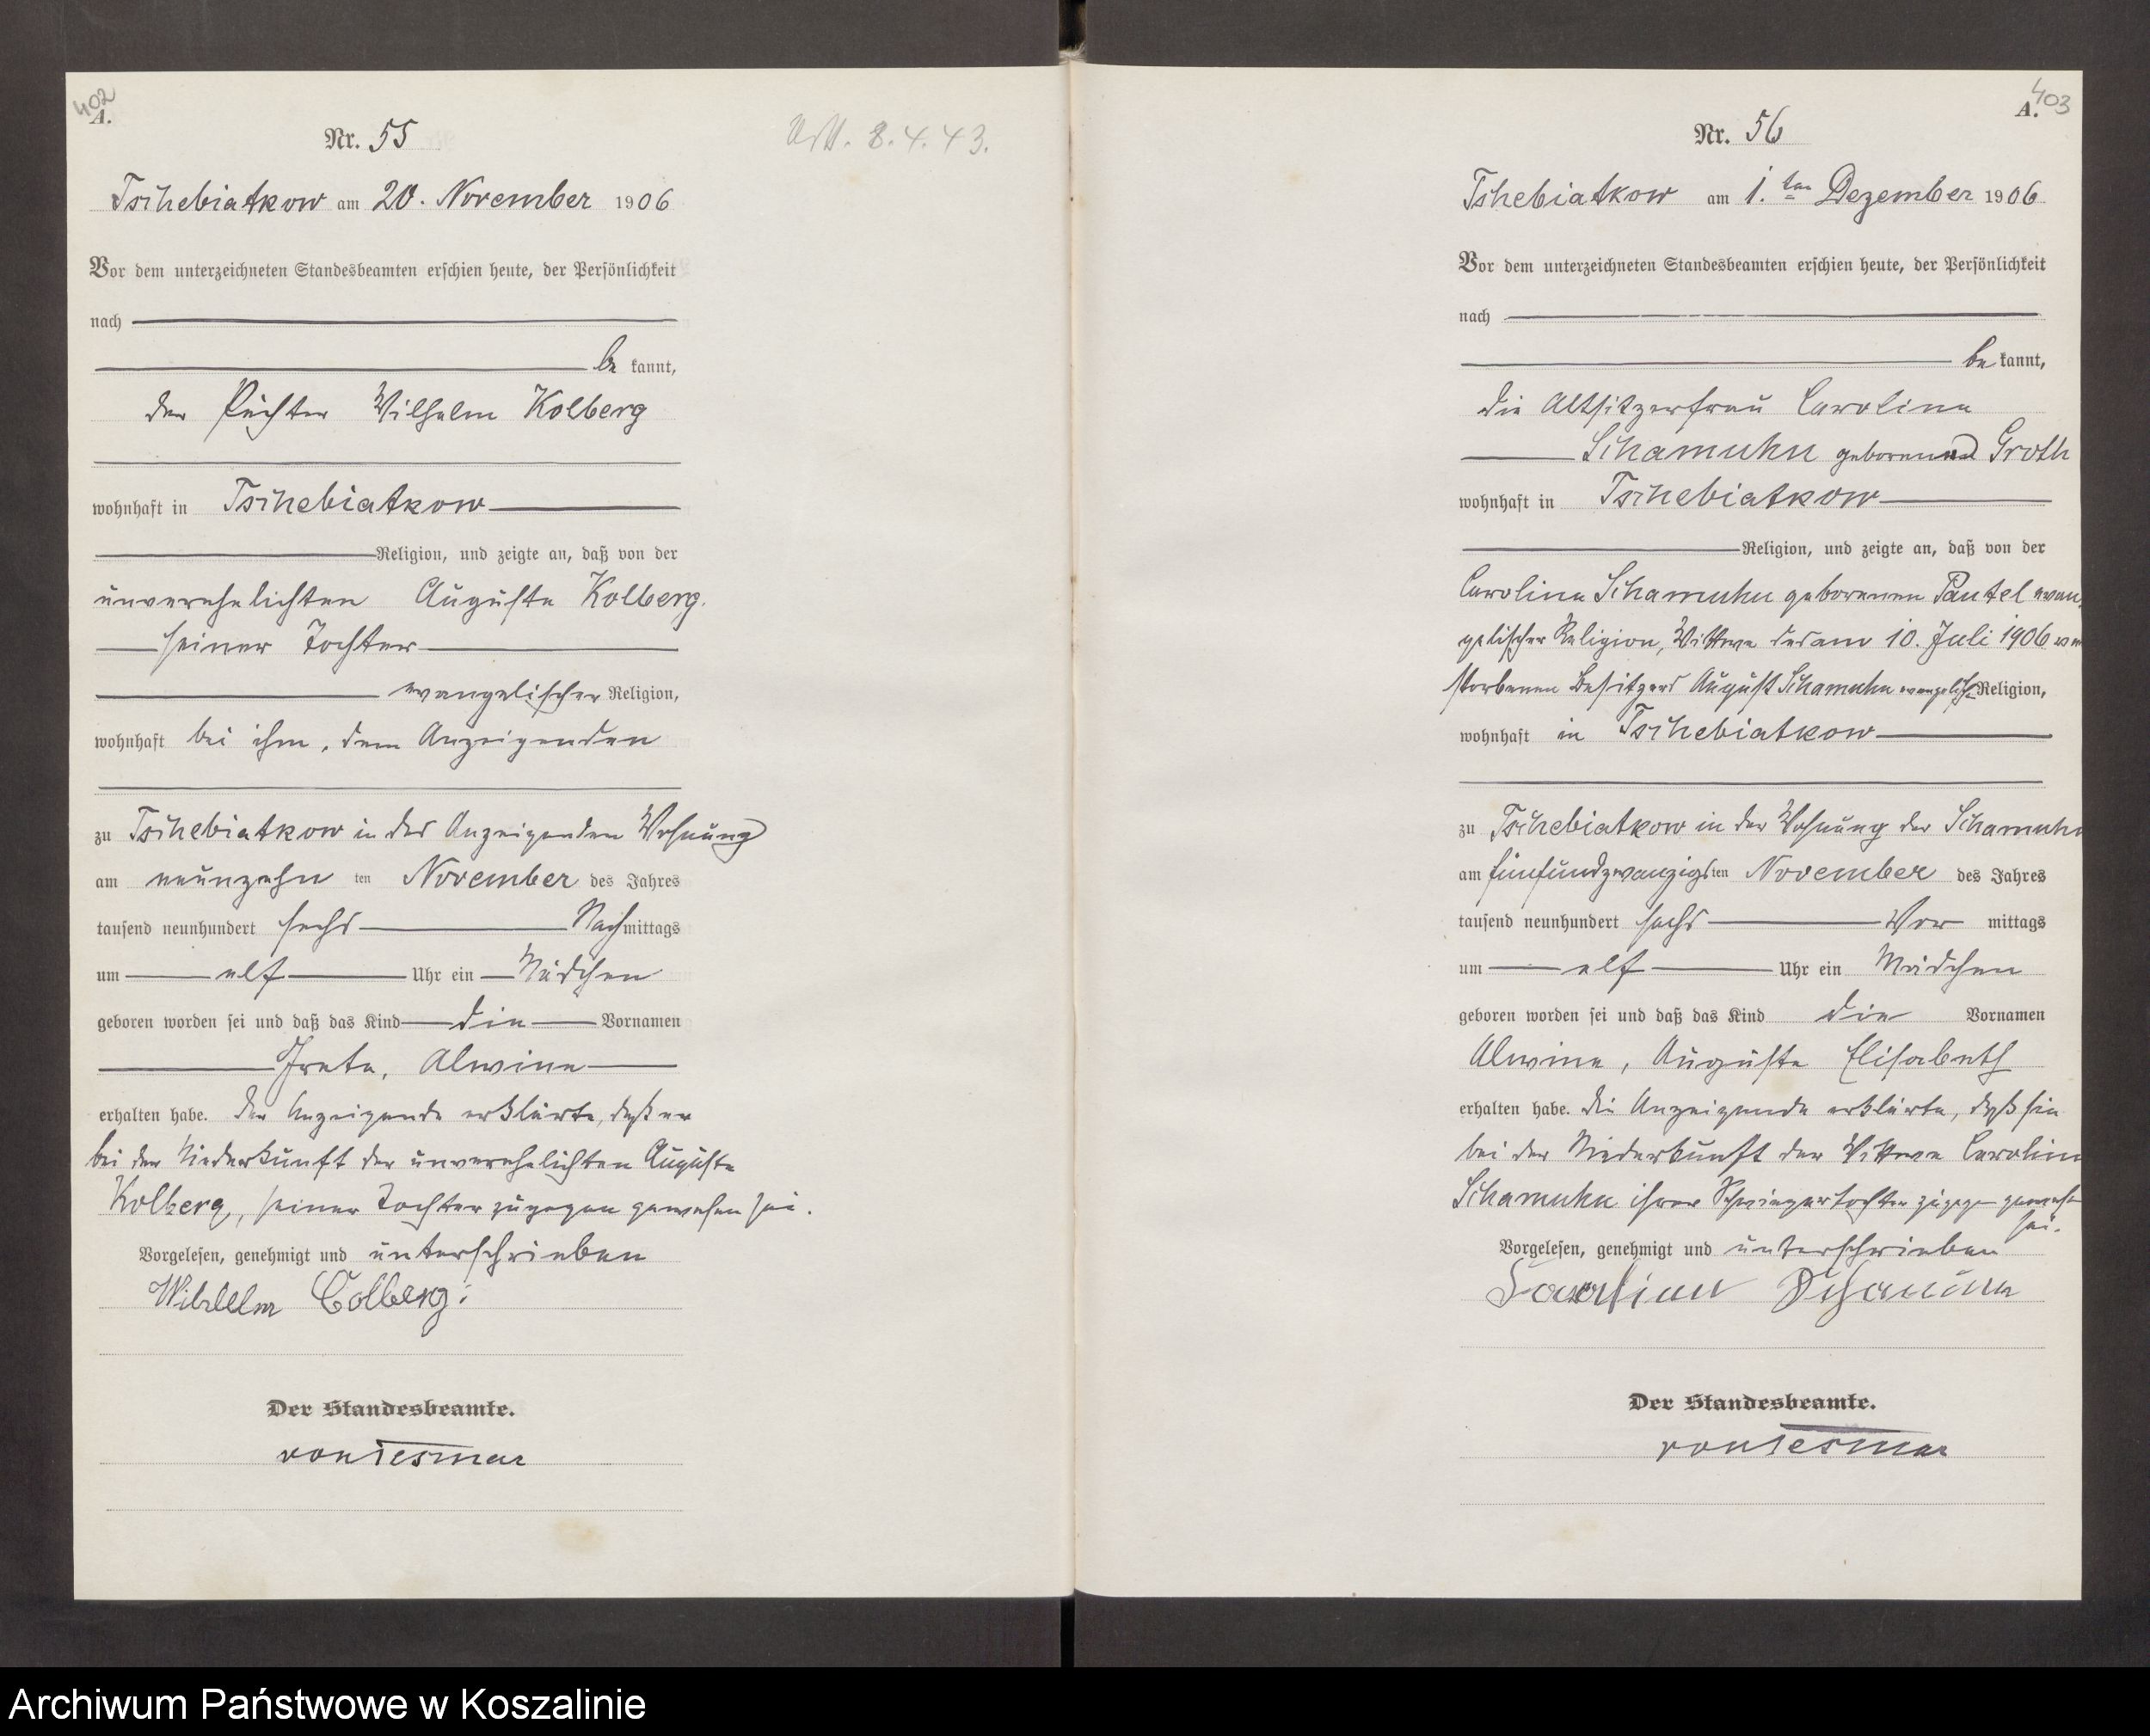 402
A.
Nr. 55
8.4.43.
Tschebiatkow am 20. November 1906
Vor dem unterzeichneten Standesbeamten erschien heute, der Persönlichkeit
nach
be kannt,
der Pächter Wilhelm Kolberg
wohnhaft in Tschebiatkow
Religion, und zeigte an, daß von der
unverehelichten Auguste Kolberg.
seiner Tochter
evangelischer Religion,
wohnhaft bei ihm, dem Anzeigenden
zu Tschebiatkow in des Anzeigenden Wohnung
am neunzehn ten November des Jahres
tausend neunhundert sechs Nachmittags
um elf Uhr ein Mädchen
geboren worden sei und daß das Kind die Vornamen
Freta, Alwine
erhalten habe. Der Anzeigende erklärte, daß er
bei der Niederkunft der unverehelichten Auguste
Kolberg, seiner Tochter zugegen gewesen sei.
Vorgelesen, genehmigt und unterschrieben
Wilhelm Colberg
Der Standesbeamte.
von Tesmar
403
A.
Nr. 56
Tshebiatkow am 1. ten Dezember 1906
Vor dem unterzeichneten Standesbeamten erschien heute, der Persönlichkeit
nach
be kannt,
die Altsitzerfrau Caroline
Schamuhn geborene Groth
wohnhaft in Tschebiatkow
Religion, und zeigte an, daß von der
Caroline Schamuhn geborenen Pautel evan
gelischer Religion, Wittwe des am 10. Juli 1906 ver
storbenen Besitzers August Schamuhn evangelisch Religion,
wohnhaft in Tschebiatkow
zu Tschebiatkow in der Wohnung der Schamuhn
am fünfundzwanzigsten November des Jahres
tausend neunhundert sechs Vor mittags
um elf Uhr ein Mädchen
geboren worden sei und daß das Kind die Vornamen
Alwine, Auguste Elisabeth
erhalten habe. Die Anzeigende erklärte, daß sie
bei der Niederkunft der Wittwe Caroline
Schamuhn ihrer Schwiegertochter zugegen gewesen
sei.
Vorgelesen, genehmigt und unterschrieben
Der Standesbeamte.
von Tesmar
Archiwum Państwowe w Koszalinie